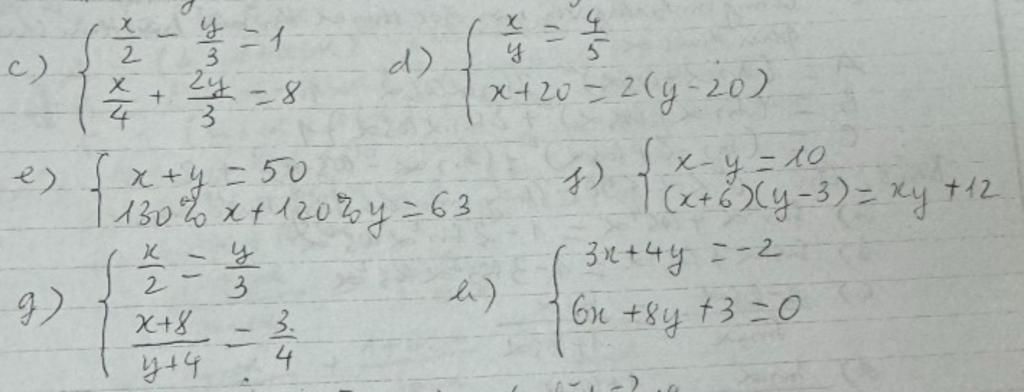 c) { x/2 - y/3 = 1
x/4 + 2y/3 = 8
d) { x/y = 4/5
x+20 = 2(y-20)
e) { x+y = 50
130% x + 120% y = 63
f) { x-y = 10
(x+6)(y-3) = xy + 12
g) { x/2 = y/3
x+8/y+4 = 3/4
h) { 3x+4y = -2
6x + 8y + 3 = 0